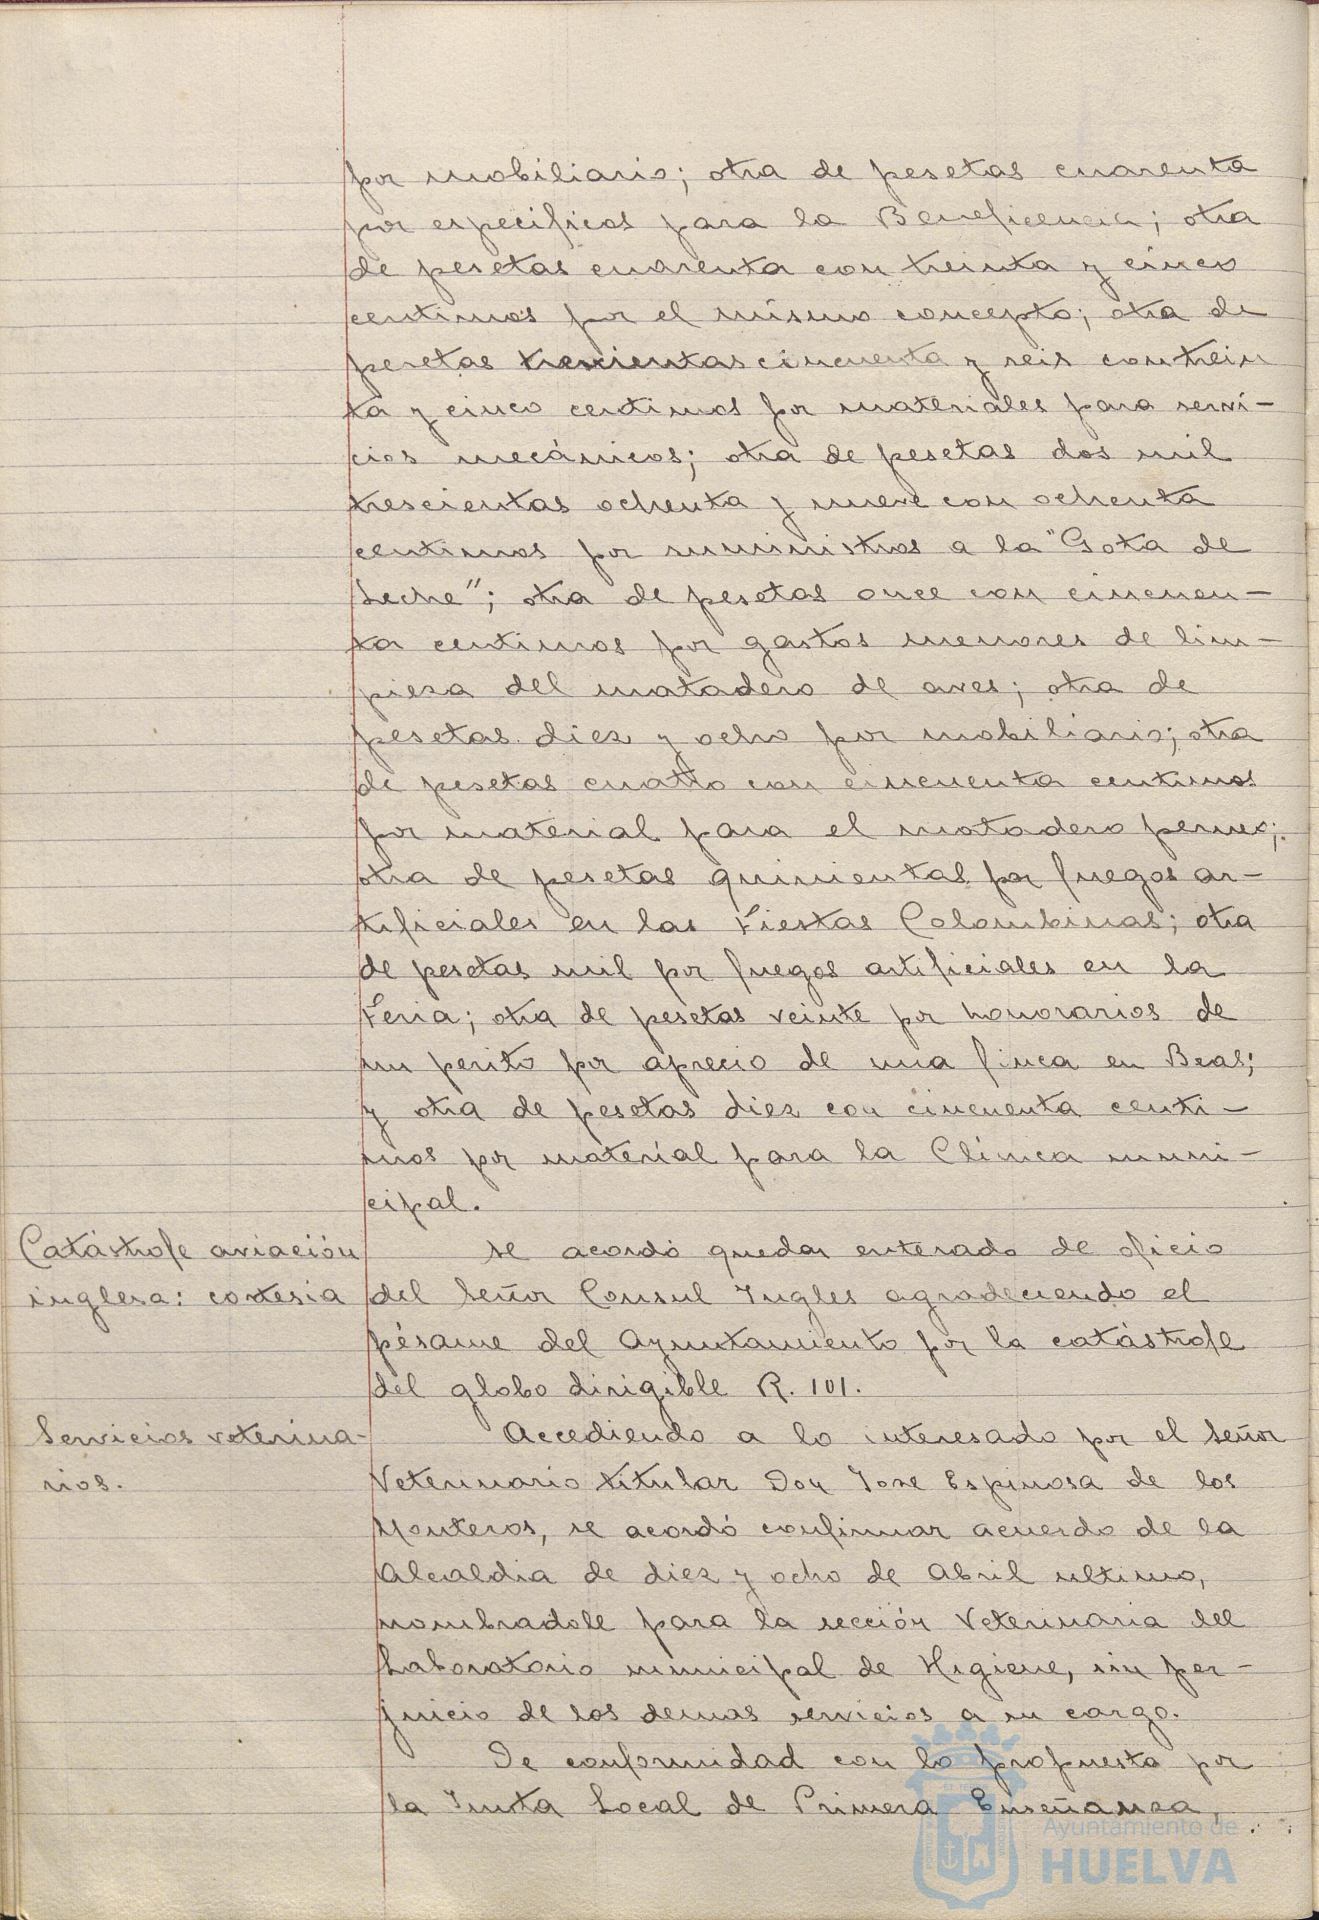 por mobiliario; otra de pesetas cuarenta
por especificos para la Beneficencia; otra
de pesetas cuarenta con treinta y cinco
centimos por el mismo concepto; otra de
pesetas trescientas cincuenta y seis con trein
ta y cinco centimos por materiales para servi-
cios mecánicos; otra de pesetas dos mil
trescientas ochenta y nueve con ochenta
centimos por suministros a la "Gota de
Leche"; otra de pesetas once con cincuen-
ta centimos por gastos menores de lim-
pieza del matadero de aves; otra de
pesetas diez y ocho por mobiliario; otra
de pesetas cuatro con cincuenta centimos
por material para el matadero permo;
otra de pesetas quinientas por fuegos ar-
tificiales en las Fiestas Colombinas; otra
de pesetas mil por fuegos artificiales en la
Feria; otra de pesetas veinte por honorarios de
un perito por aprecio de una finca en Beas;
y otra de pesetas diez con cincuenta centi-
mos por material para la Clinica muni-
cipal.
Catástrofe aviación
inglesa: cortesia
Se acordó quedar enterado de oficio
del Señor Consul Ingles agradeciendo el
pésame del Ayuntamiento por la catástrofe
del globo dirigible R. 101.
Servicios veterina-
rios.
Accediendo a lo interesado por el Señor
Veterinario titular Don Jose Espinosa de los
Monteros, se acordó confirmar acuerdo de la
Alcaldia de diez y ocho de Abril ultimo,
nombradole para la sección Veterinaria del
Laboratorio municipal de Higiene, sin per-
juicio de los demas servicios a su cargo.
De conformidad con lo propuesto por
la Junta Local de Primera Enseñanza,
Ayuntamiento de
HUELVA